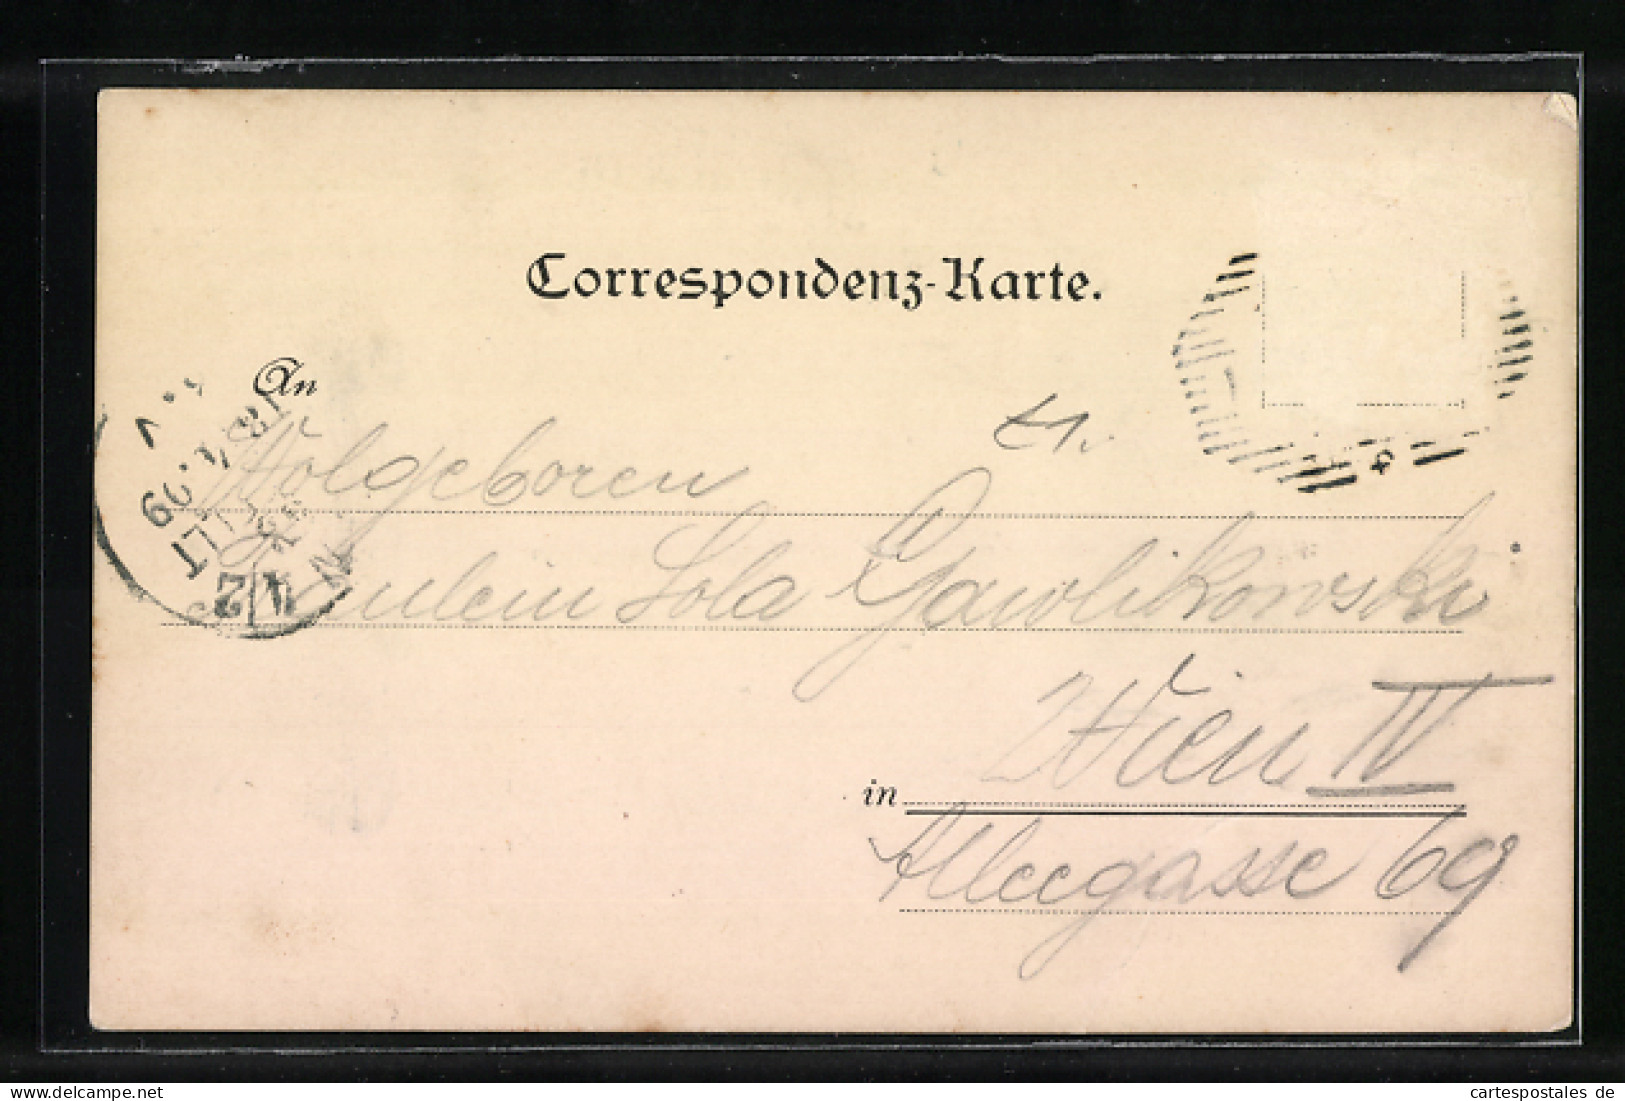 Correspondenz-Karte.
An
Wolgeboren
Fräulein Lola Gawlikowski
Wien IV
in
Alleegasse 69
18 4. 99
4/2
cartespostales de